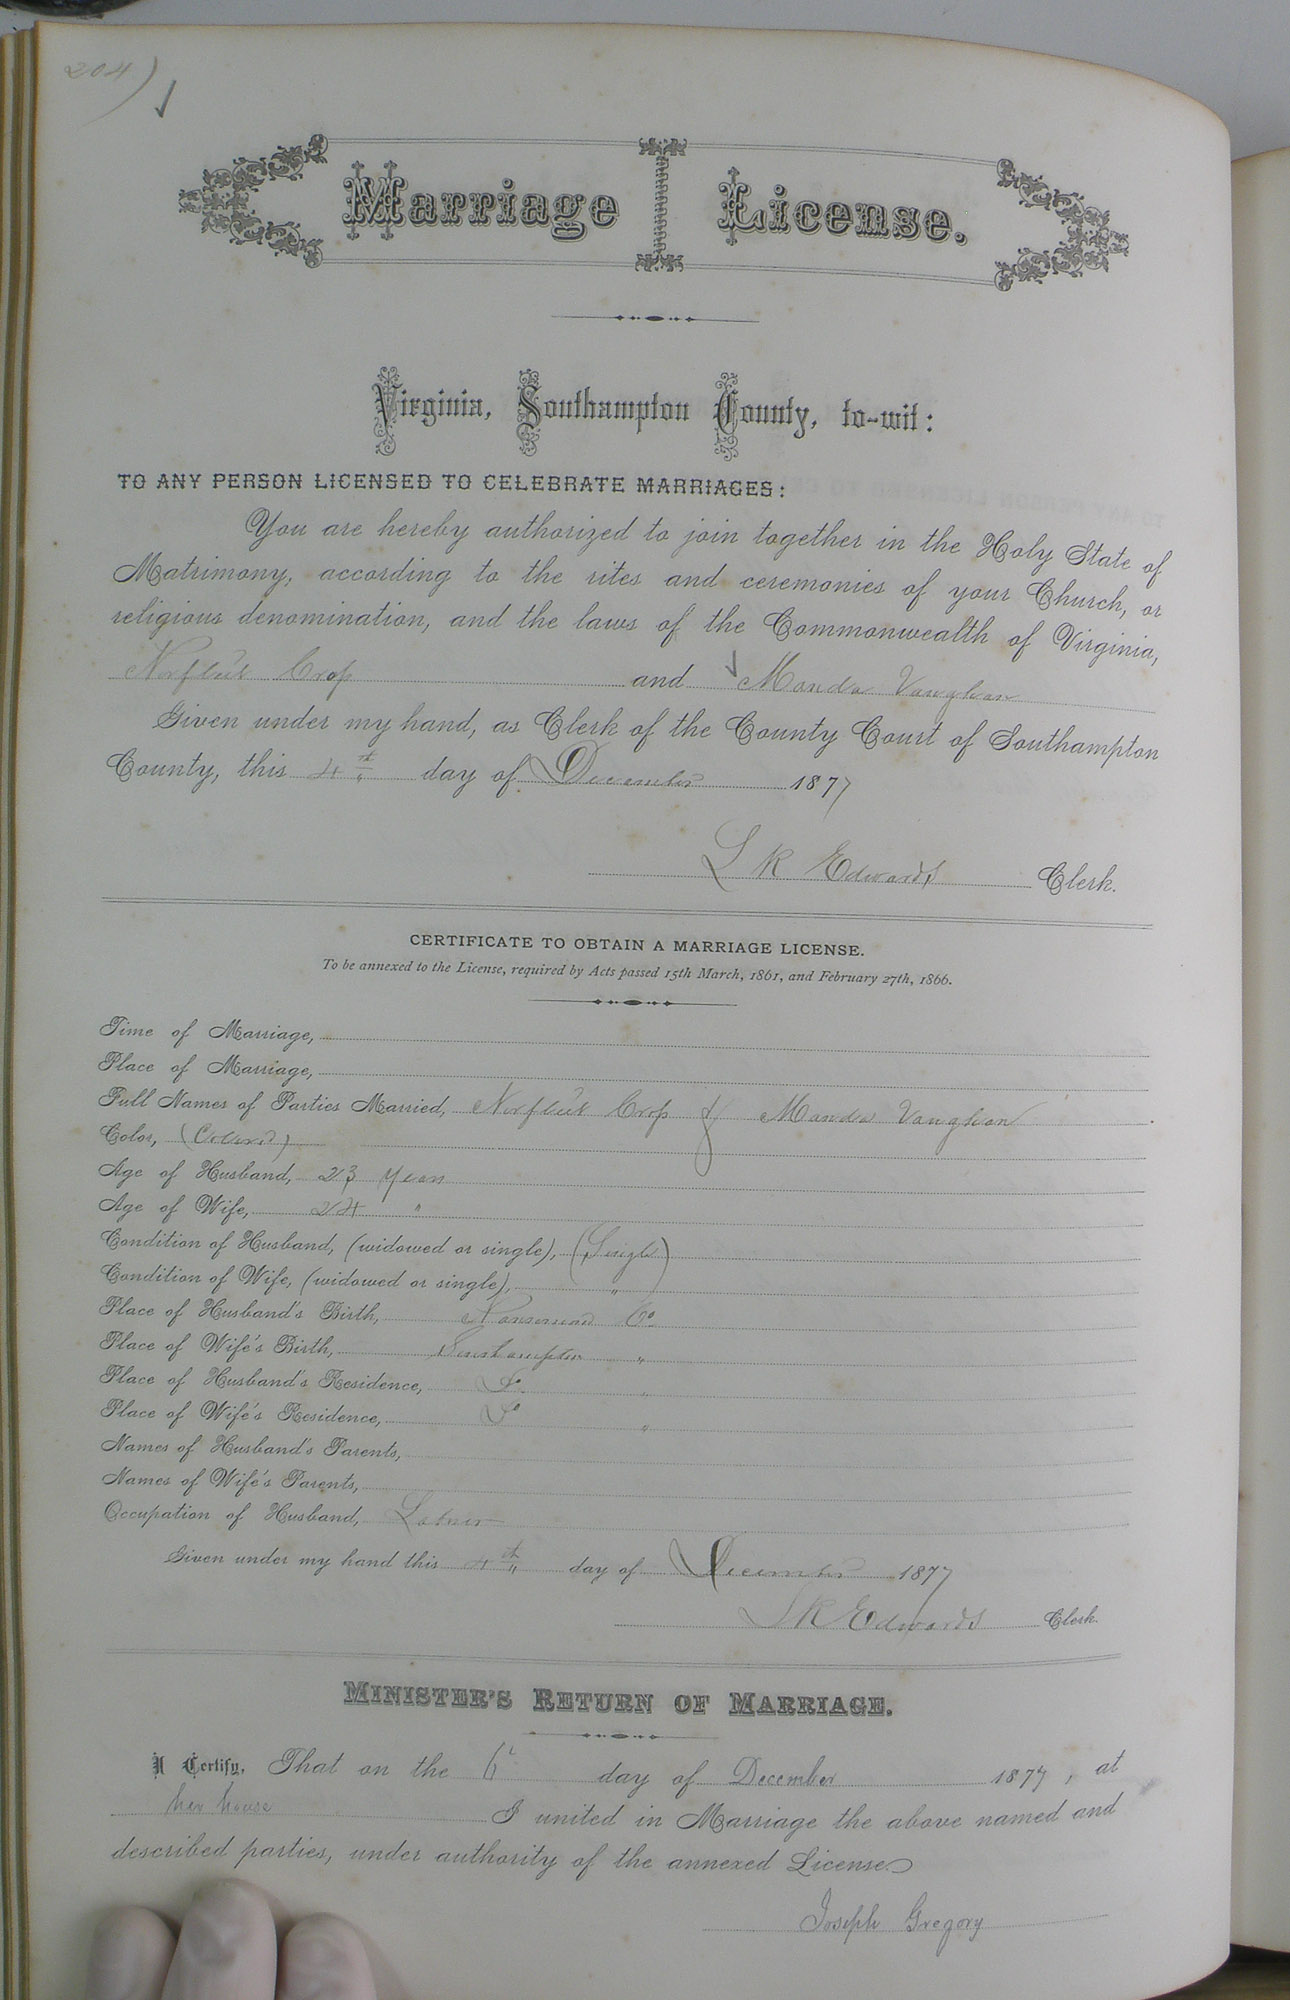 204)
Marriage License.
Virginia, Southampton County, to-wit:
TO ANY PERSON LICENSED TO CELEBRATE MARRIAGES:
You are hereby authorized to join together in the Holy State of
Matrimony, according to the rites and ceremonies of your Church, or
religious denomination, and the laws of the Commonwealth of Virginia,
Norfleet Crop and Manda Vaughan
Given under my hand, as Clerk of the County Court of Southampton
County, this 4th day of December 1877
L R Edwards Clerk.
CERTIFICATE TO OBTAIN A MARRIAGE LICENSE.
To be annexed to the License, required by Acts passed 15th March, 1861, and February 27th, 1866.
Time of Marriage,
Place of Marriage,
Full Names of Parties Married, Norfleet Crop & Manda Vaughan
Color, (Colored)
Age of Husband, 23 years
Age of Wife, 24 "
Condition of Husband, (widowed or single), (Single)
Condition of Wife, (widowed or single), "
Place of Husband's Birth, Nansemond Co
Place of Wife's Birth, Southampton "
Place of Husband's Residence, Do "
Place of Wife's Residence, Do "
Names of Husband's Parents,
Names of Wife's Parents,
Occupation of Husband, Laborer
Given under my hand this 4th day of December 1877
L R Edwards Clerk.
MINISTER'S RETURN OF MARRIAGE.
I Certify, That on the 6 day of December 1877, at
her house I united in Marriage the above named and
described parties, under authority of the annexed License
Joseph Gregory